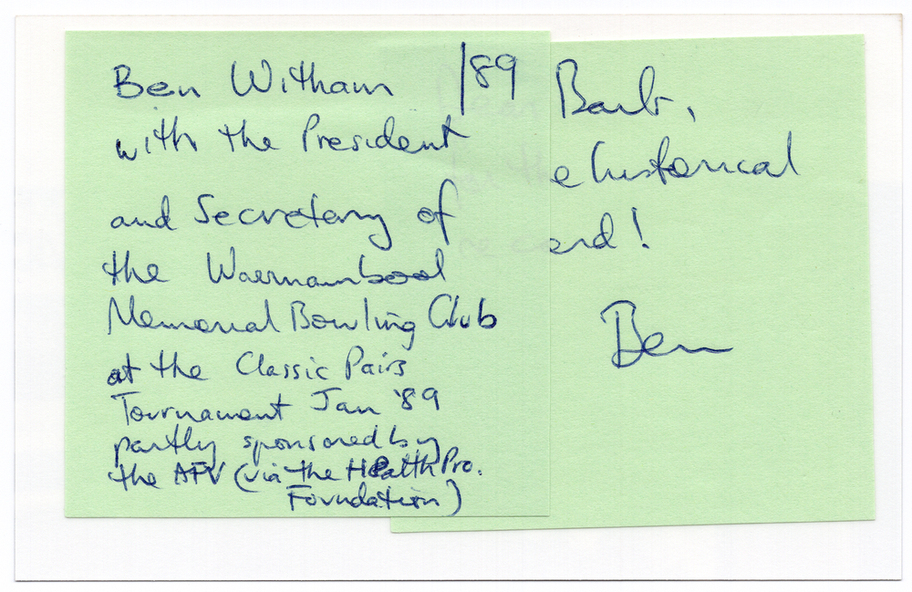 Ben Witham /89
with the President
and Secretary of
the Warrnambool
Memorial Bowling Club
at the Classic Pairs
Tournament Jan '89
partly sponsored by
the AFV (via the Health Pro.
Foundation)
Barb,
e historical
record!
Ben